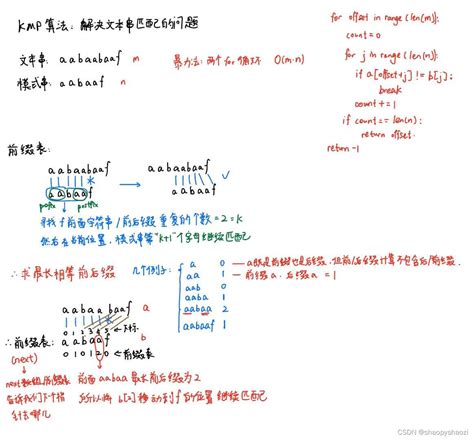 KMP算法：解决文本串匹配的问题
文本串：aabaabaaf m
模式串：aabaaf n
暴力法：两个for循环 O(m·n)
for offset in range(len(m)):
count=0
for j in range(len(n)):
if a[offset+j] != b[j]:
break
count += 1
if count == len(n):
return offset
return -1
前缀表：
aabaabaaf
aabaaf
prefix postfix
aabaabaaf
aabaaf
寻找f前面字符串/前后缀重复的个数=2=k
然后在当前位置，模式串第"k+1"个字母继续匹配
∴求最长相等前后缀
几个例子：
a 0
aa 1
aab 0
aaba 1
aabaa 2
aabaaf 1
— a既是前缀也是后缀，但前/后缀计算不包含后/前缀
— 前缀a，后缀a = 1
aabaabaaf a
0 1 2 3 4 5 下标
∴前缀表：aabaaf b
(next) 0 1 0 1 2 0 前缀表
next数组/前缀表
告诉我们下个指
针去哪儿
前面aabaa最长前后缀为2
所以将b[2]移动到f的位置继续匹配
CSDN @shaopyshaozi